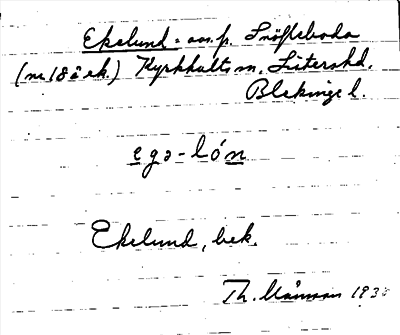 Ekelund - ans. p. Snöfleboda
(nr 18 ä ek.) Kyrkhults sn, Listers hd.
Blekinge l.
egə-lón
Ekelund, bek.
Th. Månsson 193